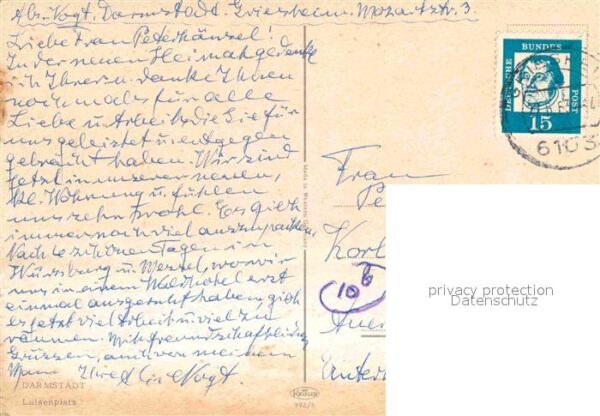 Abs. Vogt. Darmstadt. Griesheim. Mozartstr. 3.
Liebe Frau Peterhänsel!
In der neuen Heimat gedenke
ich Ihrer u. danke Ihnen
nochmals für alle
Liebe u. Arbeit die Sie für
uns geleistet u. entgegen
gebracht haben. Wir sind
jetzt in unserer neuen,
kl. Wohnung u. fühlen
uns sehr wohl. Es gibt
immer noch viel auszupacken.
Nach schönen Tagen in
Würzburg u. wo wir
uns in einem Waldhotel erst
einmal ausgeruht haben, gibt
es jetzt viel Arbeit u. viel zu
räumen. Mit freundschaftlichen
Grüssen, auch von meinem
Mann Ihre Vogt.
DARMSTADT
Luisenplatz
DEUTSCHE BUNDESPOST
15
6103
Frau
Pe
Karl
10 b
Aue
Unter
privacy protection
Datenschutz
992/5